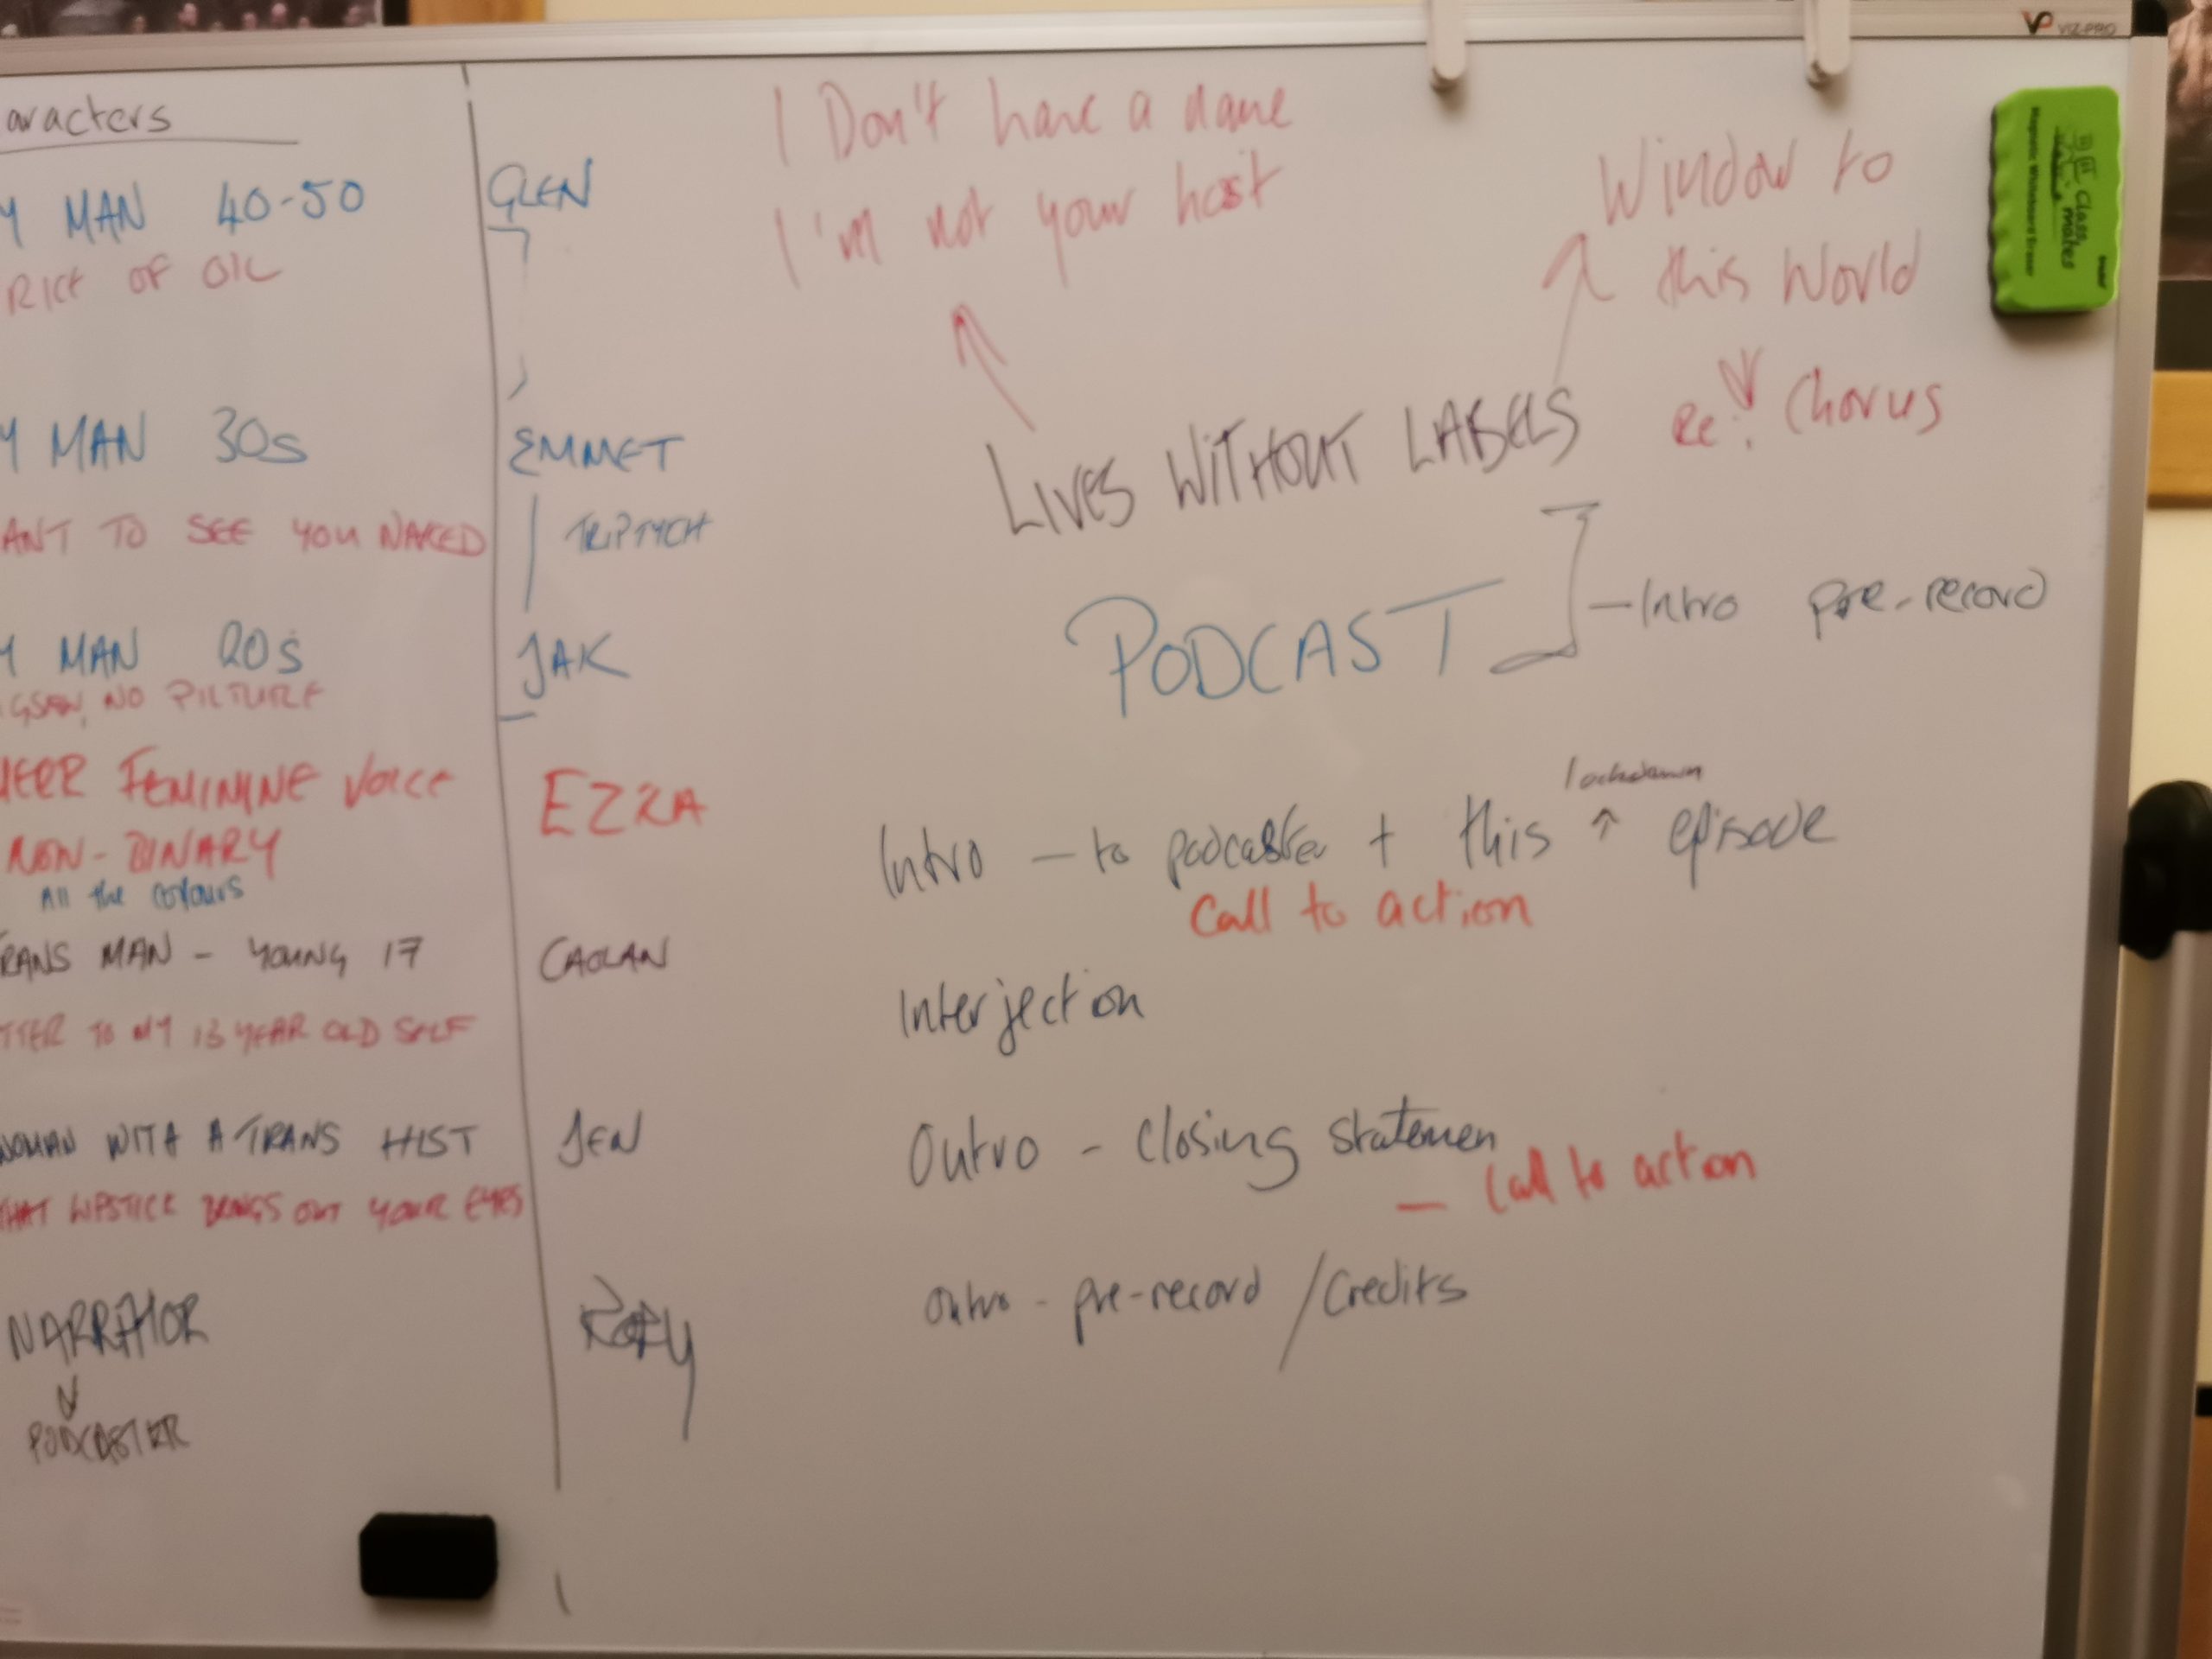 aracters
Y MAN 40-50
GLEN
RICE OF OIL
Y MAN 30s
EMMET
ANT TO SEE YOU NAKED
TRIPTYCH
Y MAN 20s
JAK
GSAW, NO PICTURE
EER FEMININE VOICE
NON-BINARY
EZRA
All the colours
RANS MAN - YOUNG 17
CAOLAN
TTER TO MY 13 YEAR OLD SELF
WOMAN WITH A TRANS HIST
JEN
HAT LIPSTICK BRINGS OUT YOUR EYES
NARRATOR
PODCASTER
I Don't have a name
I'm not your host
Window to
this World
Re: Chorus
LIVES WITHOUT LABELS
PODCAST
- Intro pre-record
lockdown
Intro - to podcaster + this ↑ episode
Call to action
Interjection
Outro - Closing statemen
- Call to action
Outro - pre-record / Credits
VIZ-PRO
Class
mates
Magnetic Whiteboard Eraser